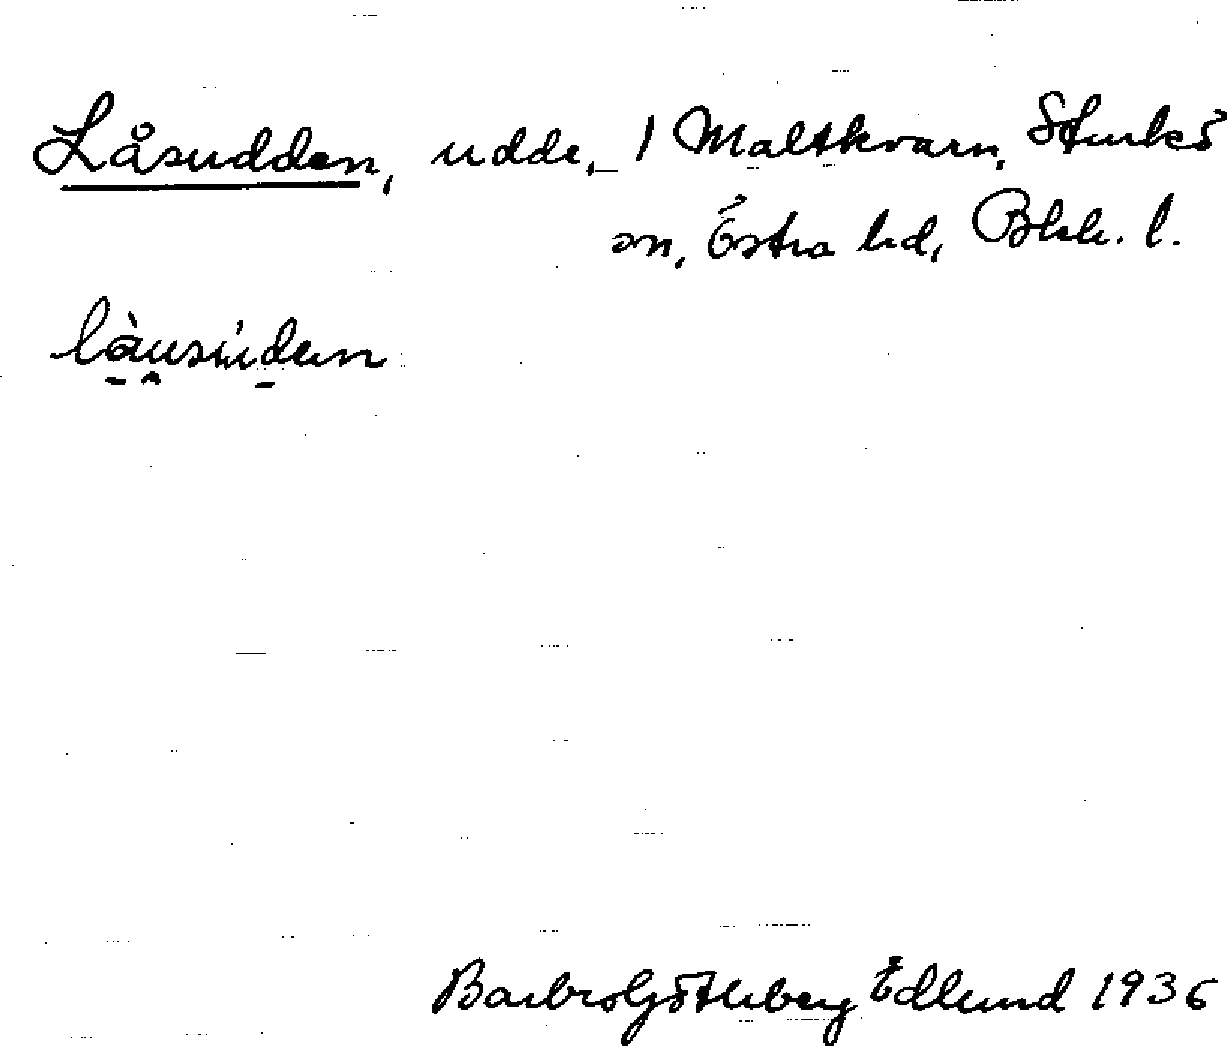 Låsudden, udde, 1 Maltkvarn, Sturkö
sn, Östra hd, Blek. l.
làusúden
Barbro Götheberg Edlund 1936